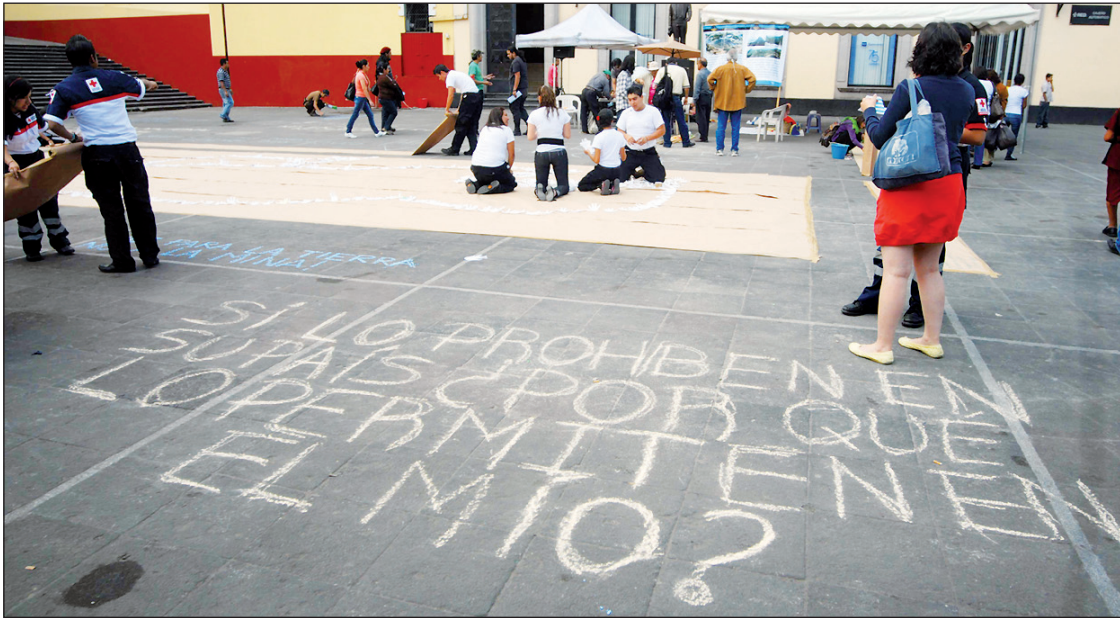 PARA LA TIERRA
LA MINA!
SI LO PROHIBEN EN
SU PAÍS ¿POR QUÉ
LO PERMITEN EN
EL MÍO?